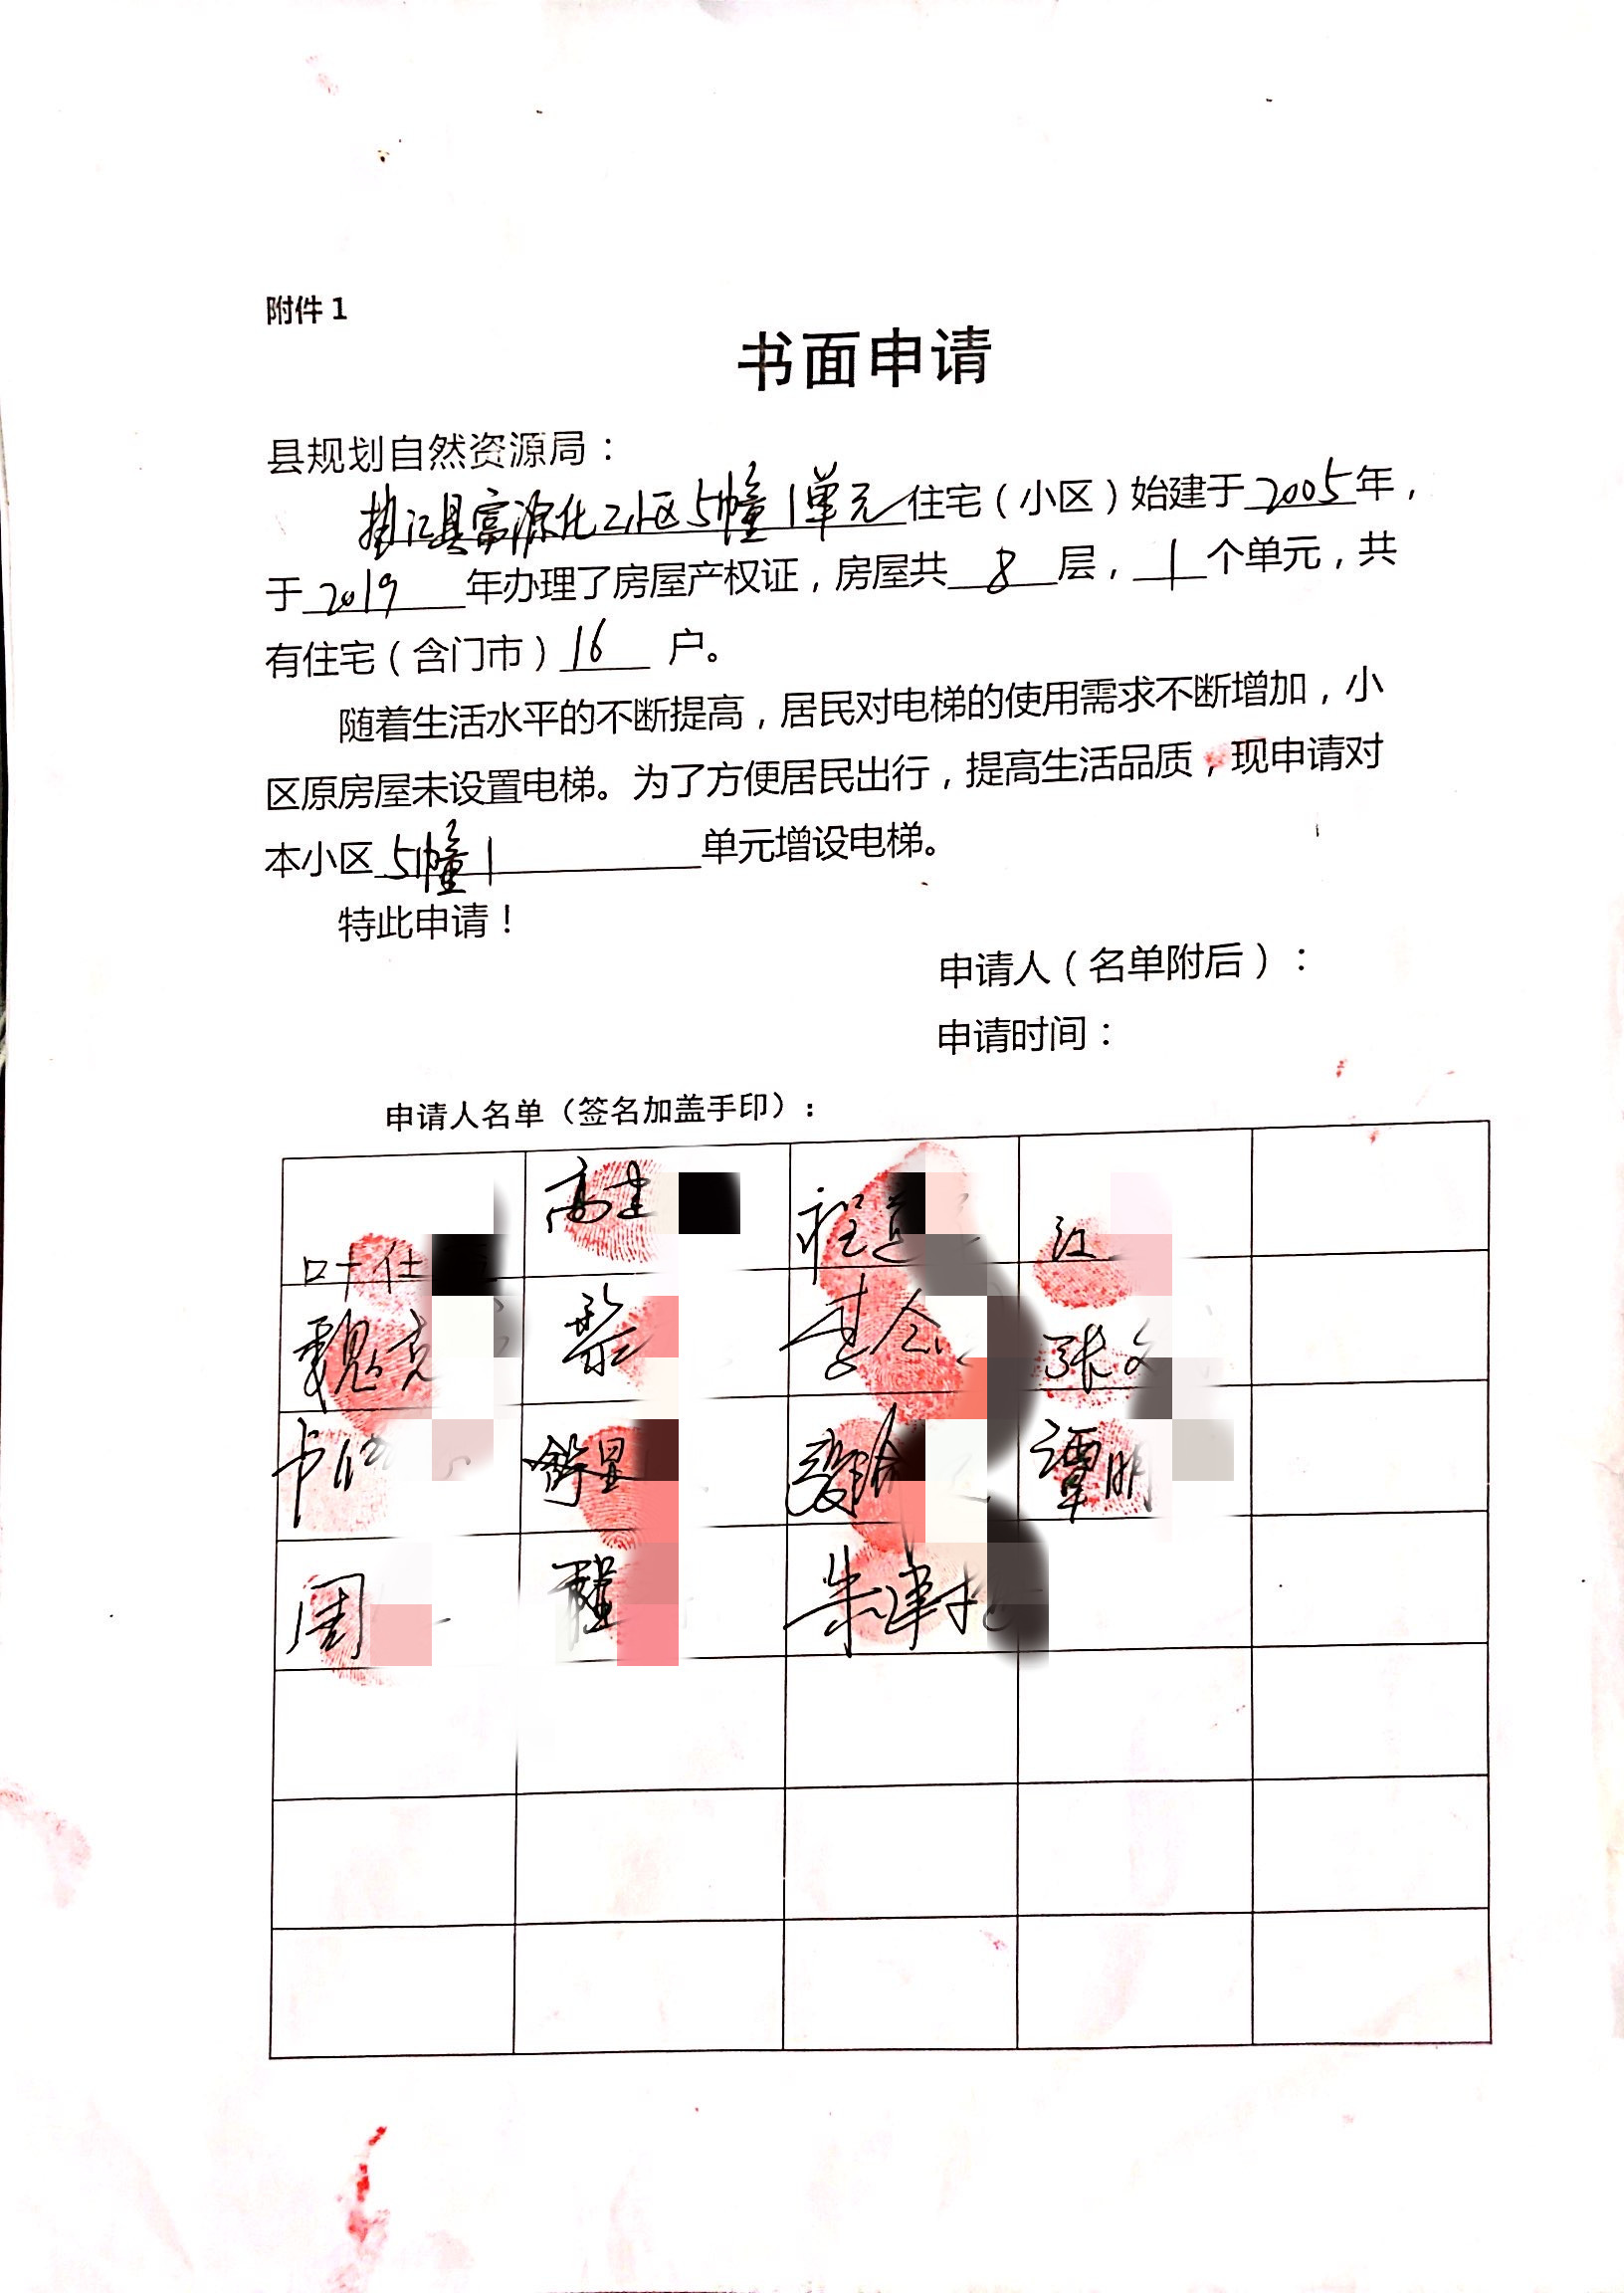 附件 1
书面申请
县规划自然资源局：
垫江县富源化工小区5幢1单元住宅（小区）始建于2005年，
于2019年办理了房屋产权证，房屋共8层，1个单元，共
有住宅（含门市）16户。
随着生活水平的不断提高，居民对电梯的使用需求不断增加，小
区原房屋未设置电梯。为了方便居民出行，提高生活品质，现申请对
本小区5幢1单元增设电梯。
特此申请！
申请人（名单附后）：
申请时间：
申请人名单（签名加盖手印）：
叶仕 高建 程道 江
魏克 李 张文
卢 谭明
周 朱建